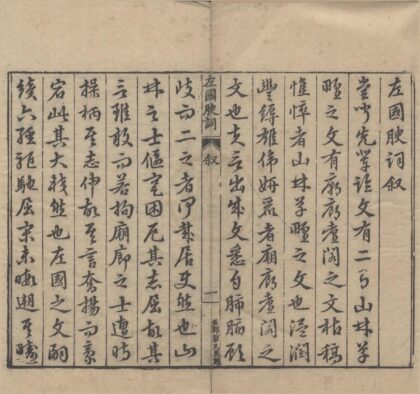 左國腴詞叙
嘗聞先輩論文有二曰山林草
野之文有廊廟臺閣之文枯槁
憔悴者山林草野之文也溫潤
豐縟雄偉妍麗者廟廊臺閣之
文也夫言出成文悉自肺腑顧
左國腴詞 叙 一
歧而二之者何哉居使然也山
林之士偃蹇困厄其志屈故其
言雖敷而若拘廟廊之士遭時
操柄其志伸故其言奮揚而豪
宕此其大較然也左國之文嗣
續六經馳屈宋未遡其